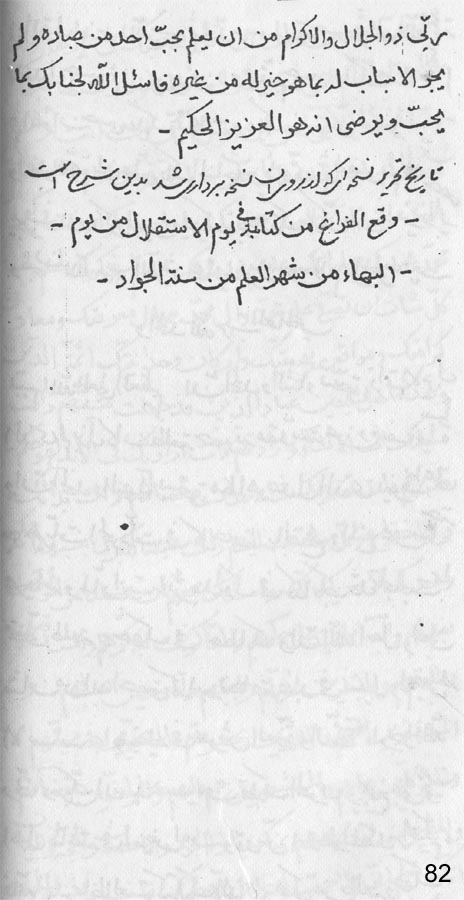 ربّي ذو الجلال والاكرام من ان يعلم بحبّ احد من عباده ولم
يجر الاسباب له بما هو خير له من غيره فاسئل الله لجنابك بما
يحبّ ويرضى انه هو العزيز الحكيم -
تاريخ تحرير نسخه اى كه از روى ان نسخه بردارى شد بدين شرح است
- وقع الفراغ من كتابته فى يوم الاستقلال من يوم -
- البهاء من شهر العلم من سنة الجواد -
82